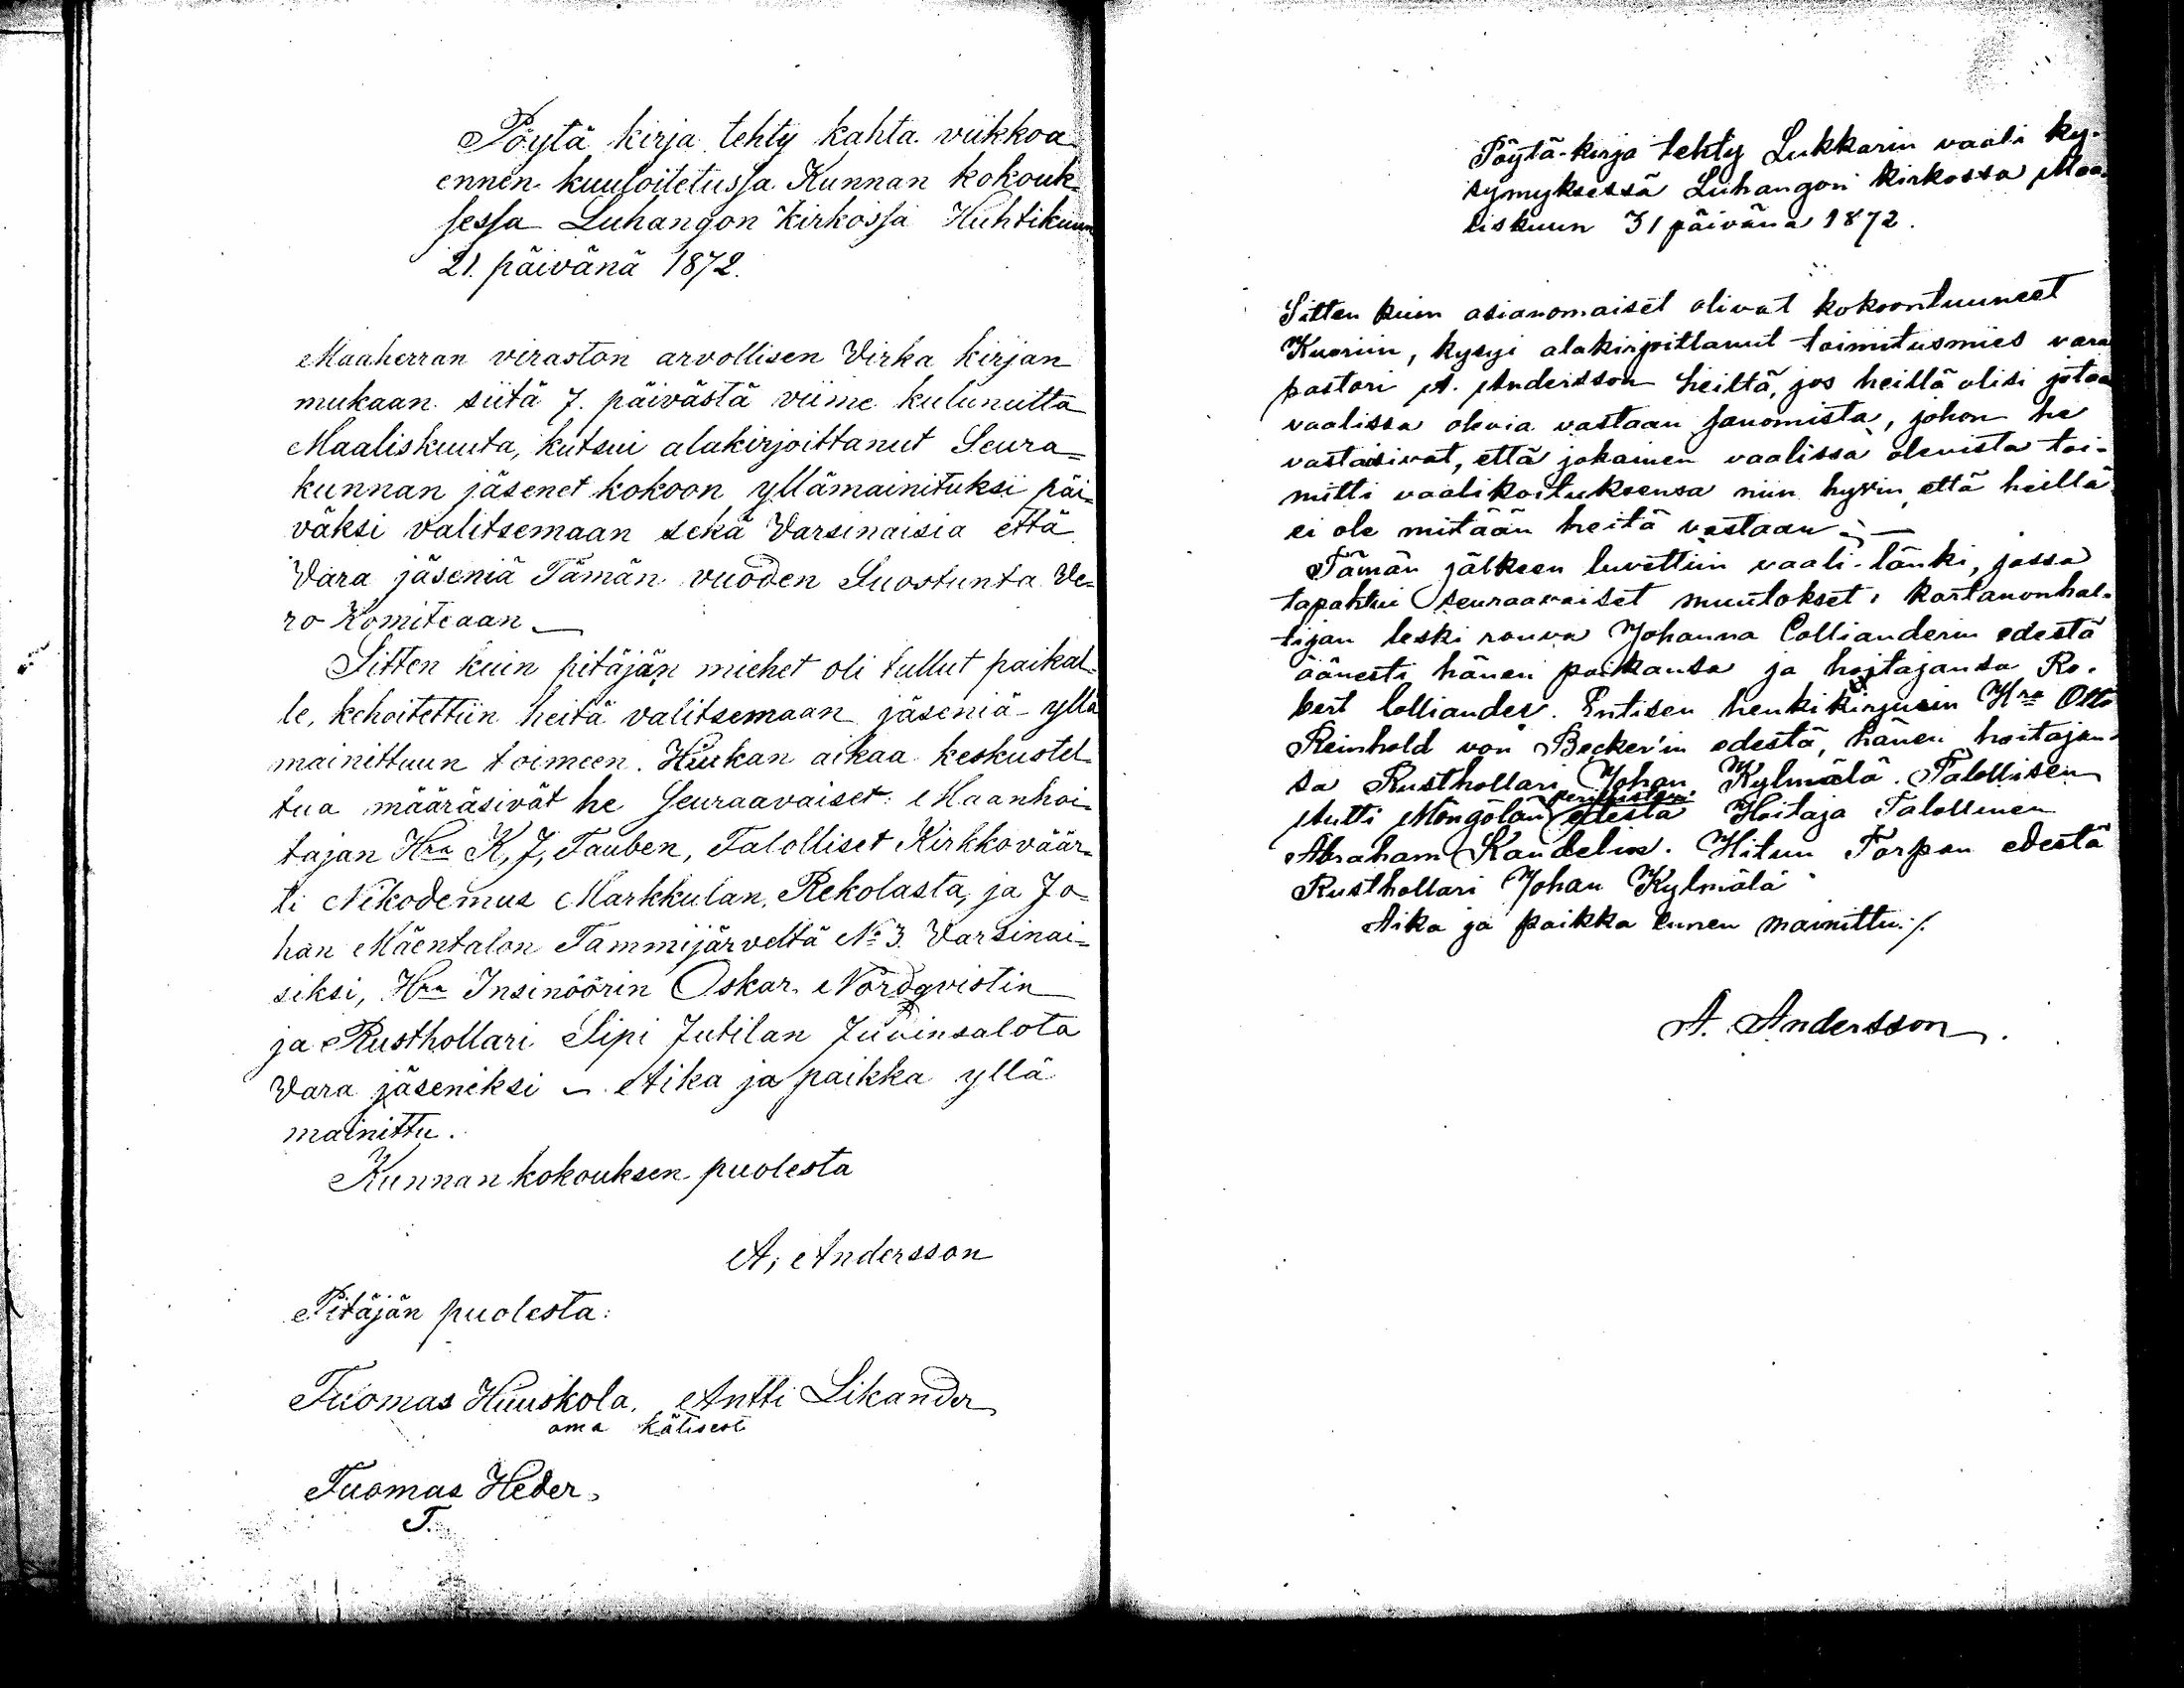 Pöytä kirja tehty kahta viikkoa
ennen kuuloitetussa Kunnan kokouk-
sessa Luhangon Kirkossa Huhtikuun
21. päivänä 1872.
Maaherran viraston arvollisen Virka kirjan
mukaan siitä 7. päivästä viime kulunutta
Maaliskuuta, kutsui alakirjoittanut Seura=
kunnan jäsenet kokoon yllämainituksi päi=
väksi valitsemaan sekä Varsinaisia että
Vara jäseniä Tämän vuoden Suostunta Ve=
ro Komiteaan —
Sitten kuin pitäjän miehet oli tullut paikal=
le, kehoitettiin heitä valitsemaan jäseniä yllä
mainittuun toimeen. Hiukan aikaa keskustel=
tua määräsivät he Seuraavaiset: Maanhoi=
tajan Hra K, J, Tauben, Talolliset Kirkkoväär=
ti Nikodemus Markkulan, Rekolasta, ja Jo=
han Mäentalon Tammijärveltä No 3. Varsinai=
siksi, Hra Insinöörin Oskar Nordqvistin
ja Rusthollari Sipi Jutilan Juvinsalota
Vara jäseniksi — Aika ja paikka yllä
mainittu.
Kunnan kokouksen puolesta
A, Andersson
Pitäjän puolesta:
Tuomas Huuskola. Antti Likander
oma kätisest
Tuomas Heder,
T.
Pöytä-kirja tehty Lukkarin vaali ky-
symyksessä Luhangon kirkossa Maa-
liskuun 31 päivänä 1872.
Sitten kuin asianomaiset olivat kokoontuuneet
Kuoriin, kysyi alakirjoittanut toimitusmies vara
pastori A. Andersson heiltä, jos heillä olisi jotaa
vaalissa olevia vastaan sanomista, johon he
vastasivat, että jokainen vaalissa olevista toi-
mitti vaalikoituksensa niin hyvin että heillä
ei ole mitään heitä vastaan ; —
Tämän jälkeen luvettiin vaali-länki, jossa
tapahtui seuraavaiset muutokset: kartanonhal-
tijan leski rouva Johanna Collianderin edestä
äänesti hänen poikansa ja hoitajansa Ro-
bert Colliander. Entisen henkikirjurin Hra Otto
Reinhold von Becker'in edestä, hänen hoitajan-
sa Rusthollari Johan Kylmälä. Talollisen
perillisten
Antti Mongolan edestä Hoitaja Talollinen
Abraham Kandelin. Hitun Torpan edestä
Rusthollari Johan Kylmälä
Aika ja paikka ennen mainittu ./.
A. Andersson.